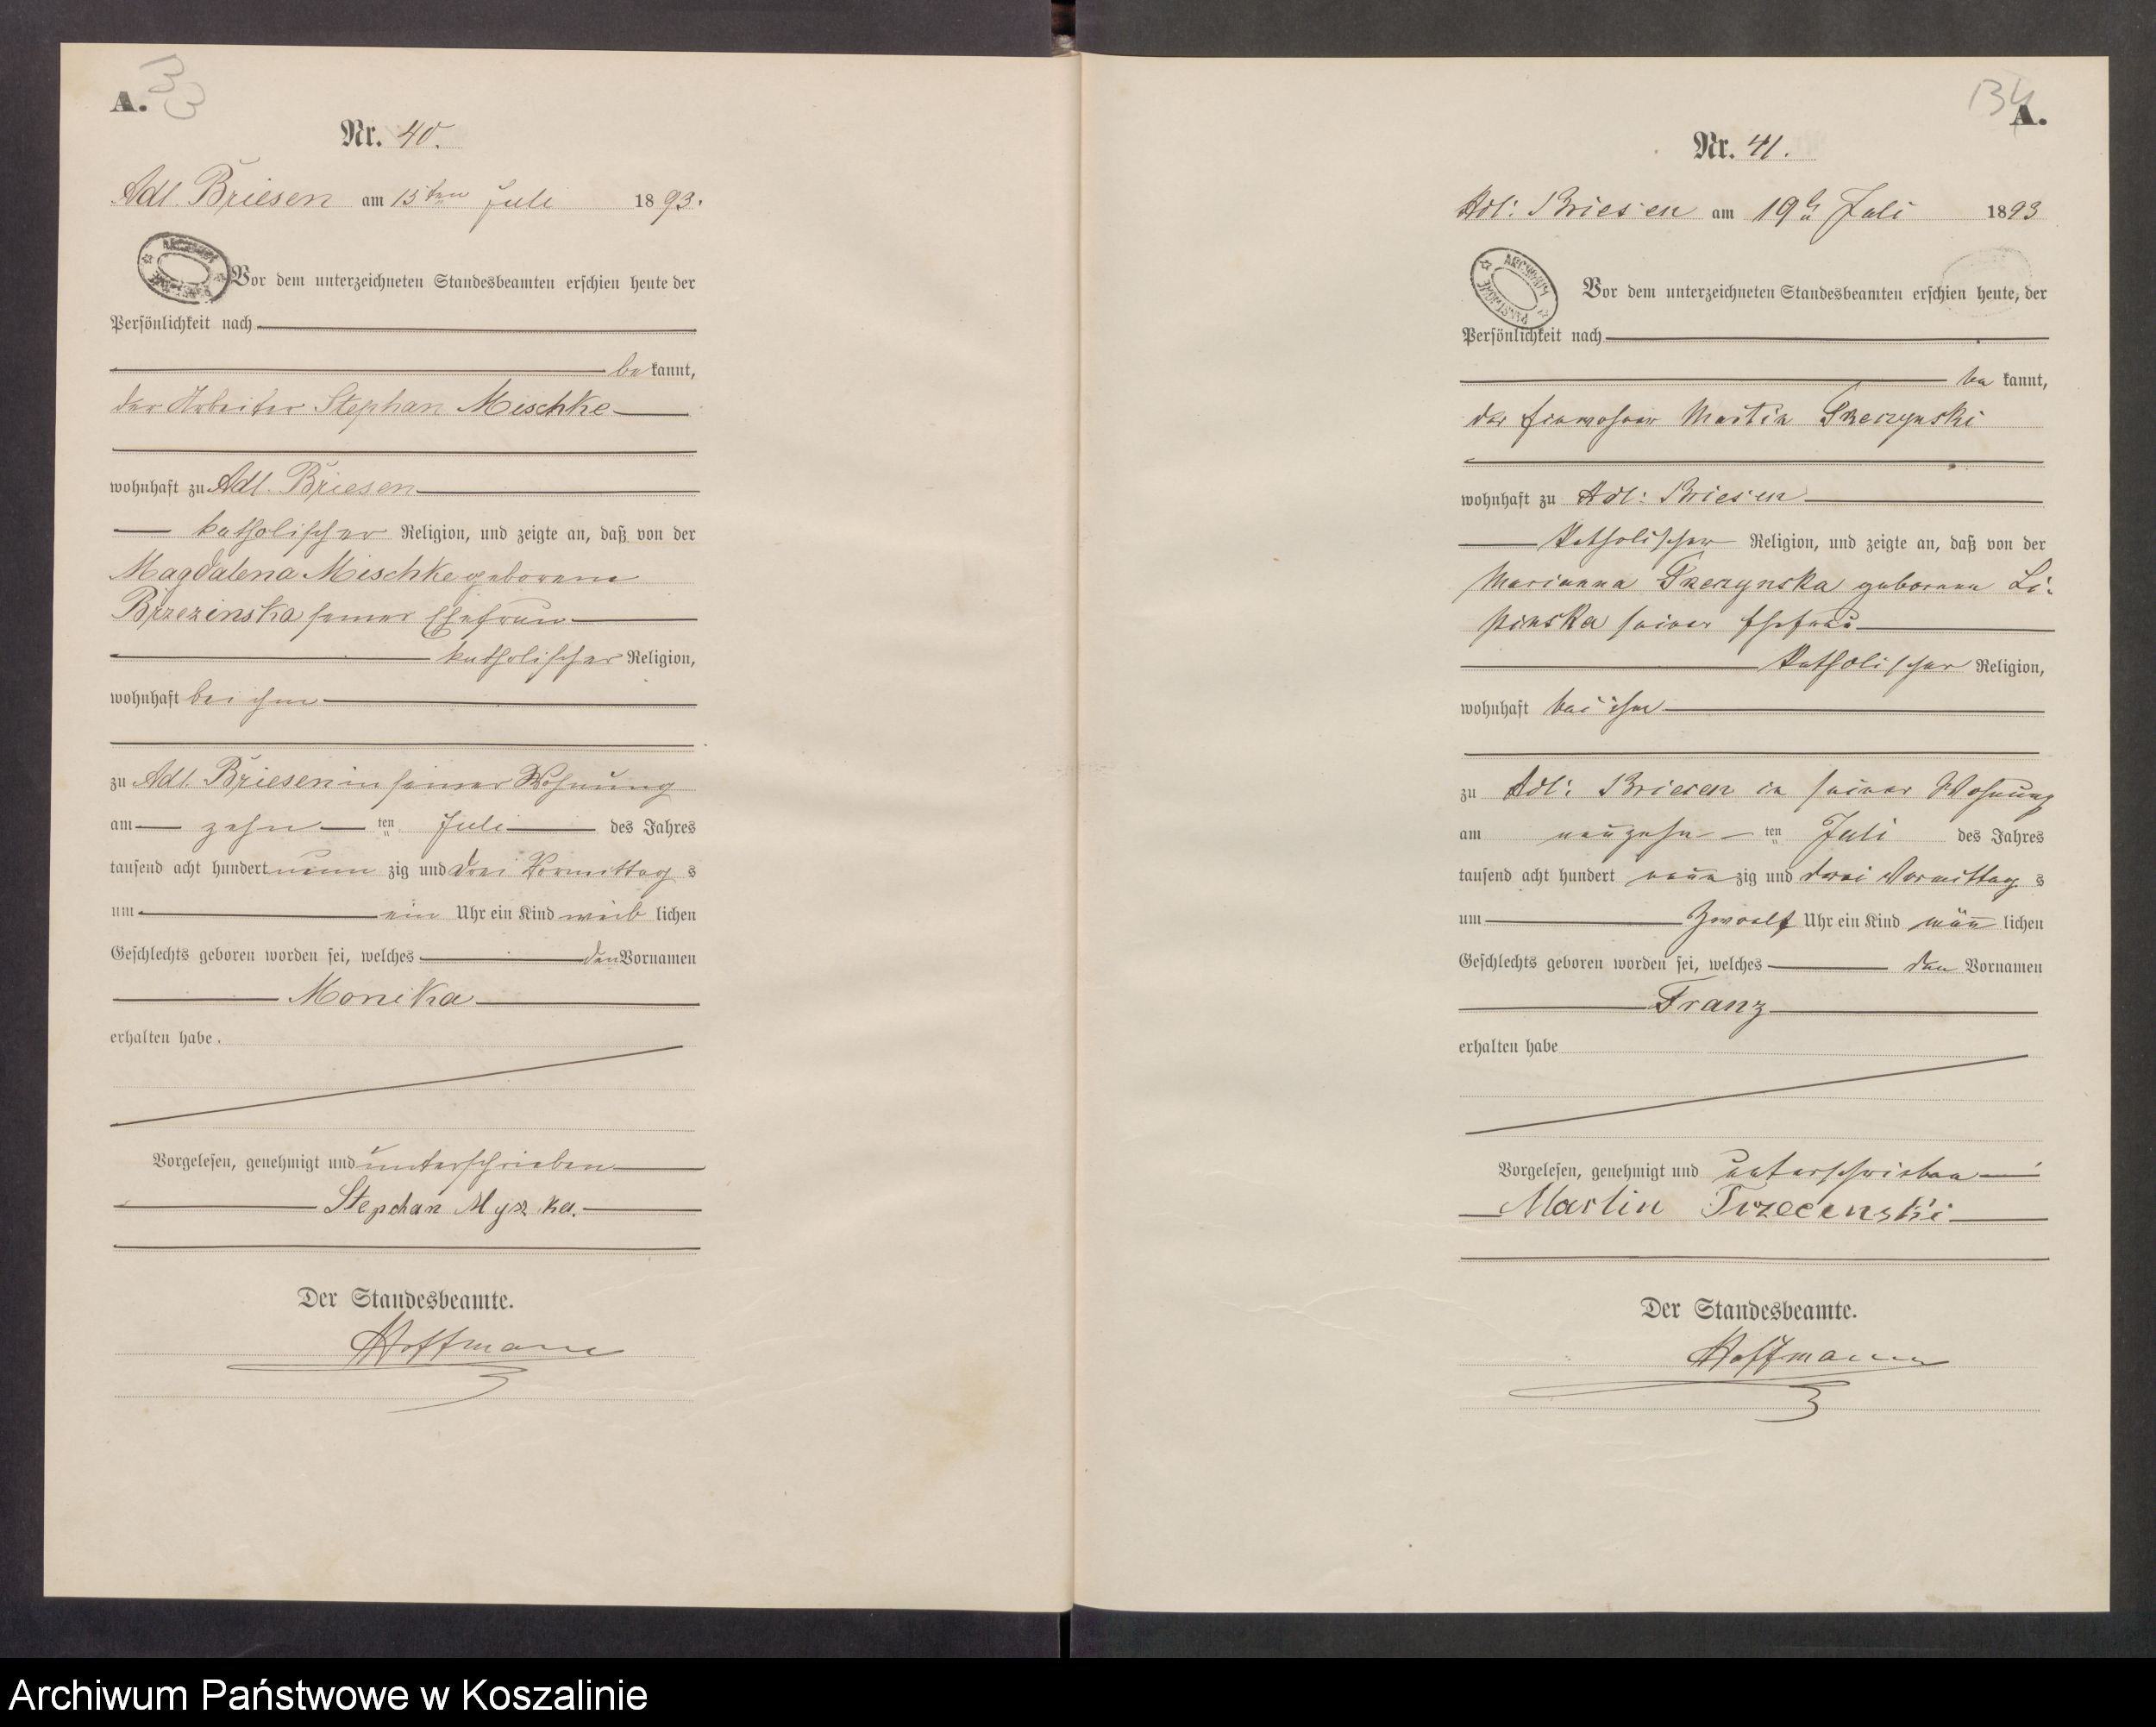 33
A.
Nr. 40.
Adl. Briesen am 15ten Juli 1893.
ARCHIWUM PAŃSTWOWE
Vor dem unterzeichneten Standesbeamten erschien heute der
Persönlichkeit nach
bekannt,
der Arbeiter Stephan Mischke
wohnhaft zu Adl. Briesen
katholischer Religion, und zeigte an, daß von der
Magdalena Mischke geborene
Brzezinska seiner Ehefrau
katholischer Religion,
wohnhaft bei ihm
zu Adl. Briesen in seiner Wohnung
am zehn ten Juli des Jahres
tausend acht hundert neun zig und drei Vormittag s
um ein Uhr ein Kind weib lichen
Geschlechts geboren worden sei, welches den Vornamen
Monika
erhalten habe.
Vorgelesen, genehmigt und unterschrieben
Stephan Myszka.
Der Standesbeamte.
Hoffmann
34
A.
Nr. 41.
Adl: Briesen am 19t Juli 1893
ARCHIWUM PAŃSTWOWE
Vor dem unterzeichneten Standesbeamten erschien heute, der
Persönlichkeit nach
be kannt,
der Einwohner Martin
wohnhaft zu Adl: Briesen
katholischer Religion, und zeigte an, daß von der
Marianna geborene Li-
pinska seiner Ehefrau
katholischer Religion,
wohnhaft bei ihm
zu Adl: Briesen in seiner Wohnung
am neunzehn ten Juli des Jahres
tausend acht hundert neun zig und drei Vormittag s
um zwoelf Uhr ein Kind männ lichen
Geschlechts geboren worden sei, welches den Vornamen
Franz
erhalten habe
Vorgelesen, genehmigt und unterschrieben
Martin Trzecinski
Der Standesbeamte.
Hoffmann
Archiwum Państwowe w Koszalinie